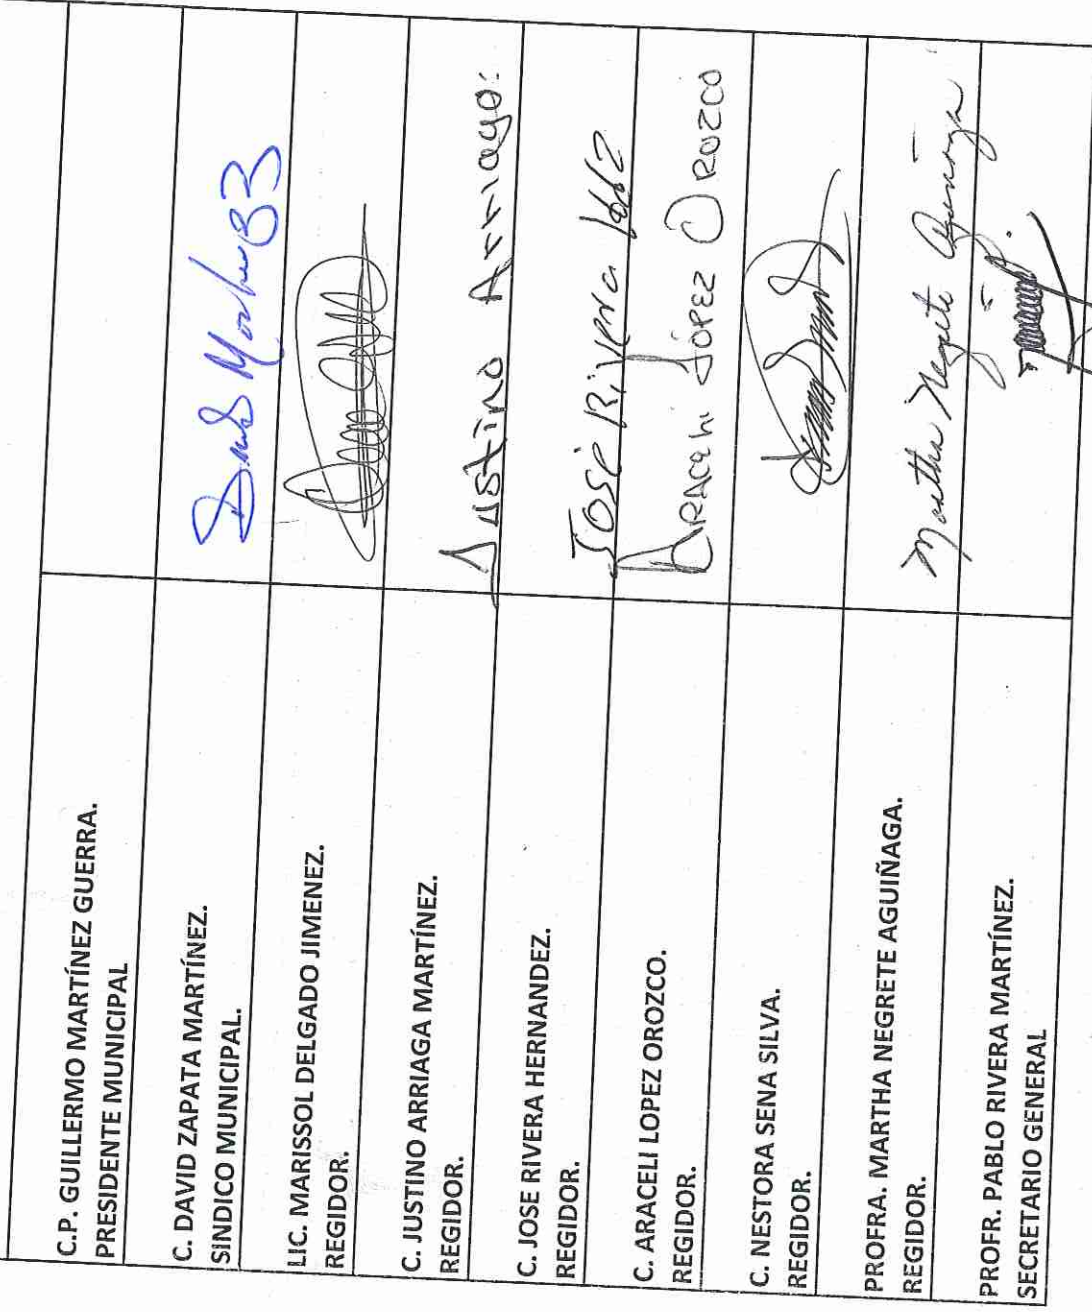 C.P. GUILLERMO MARTÍNEZ GUERRA.
PRESIDENTE MUNICIPAL
C. DAVID ZAPATA MARTÍNEZ.
SINDICO MUNICIPAL.
LIC. MARISSOL DELGADO JIMENEZ.
REGIDOR.
C. JUSTINO ARRIAGA MARTÍNEZ.
REGIDOR.
Justino Arriaga.
C. JOSE RIVERA HERNANDEZ.
REGIDOR.
José Rivera
C. ARACELI LOPEZ OROZCO.
REGIDOR.
ARACELI LÓPEZ OROZCO
C. NESTORA SENA SILVA.
REGIDOR.
PROFRA. MARTHA NEGRETE AGUIÑAGA.
REGIDOR.
Martha Negrete
PROFR. PABLO RIVERA MARTÍNEZ.
SECRETARIO GENERAL